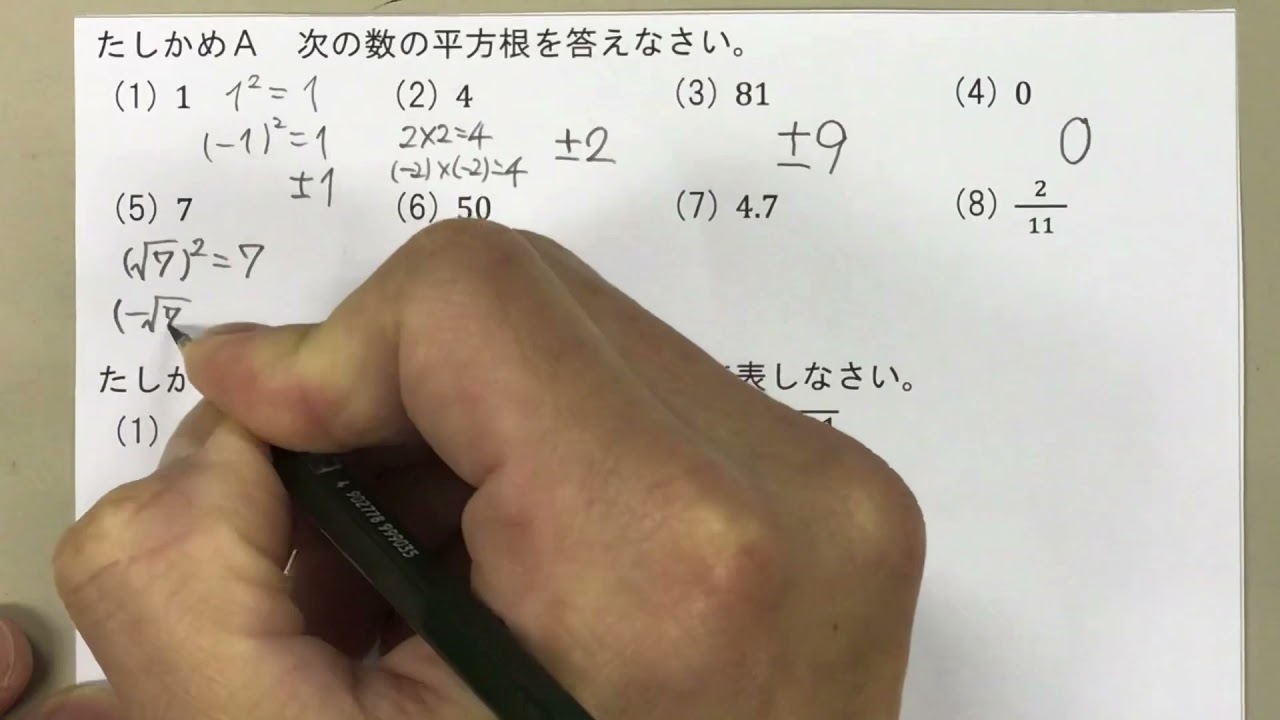 たしかめA 次の数の平方根を答えなさい。
(1) 1 1² = 1 (2) 4 (3) 81 (4) 0
(-1)² = 1 2×2=4 ±2 ±9 0
±1 (-2)×(-2)=4
(5) 7 (6) 50 (7) 4.7 (8) 2/11
(√7)² = 7
(-√7
たしか 表しなさい。
(1)
4 902778 999035